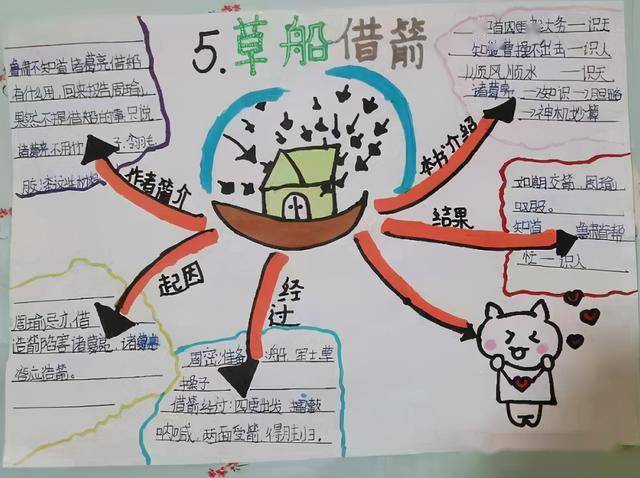 5.草船借箭
鲁肃不知道诸葛亮借船
有什么用,回来报告周瑜,
果然不提借船的事只说
诸葛亮不用竹子、翎毛
胶
作者简介
起因
周瑜忌才,借
造箭陷害诸葛亮,诸葛亮
答应造箭。
经过
周密准备:船、军士草
借箭经过:四更出发 擂鼓
呐喊,两面受箭,得胜归。
本书介绍
知道曹操不出去—识人
顺风顺水—识天
诸葛亮→知识→胆略
→神机妙算
结果
如期交箭,周瑜
叹服。
知道
鲁肃肯帮
忙—识人